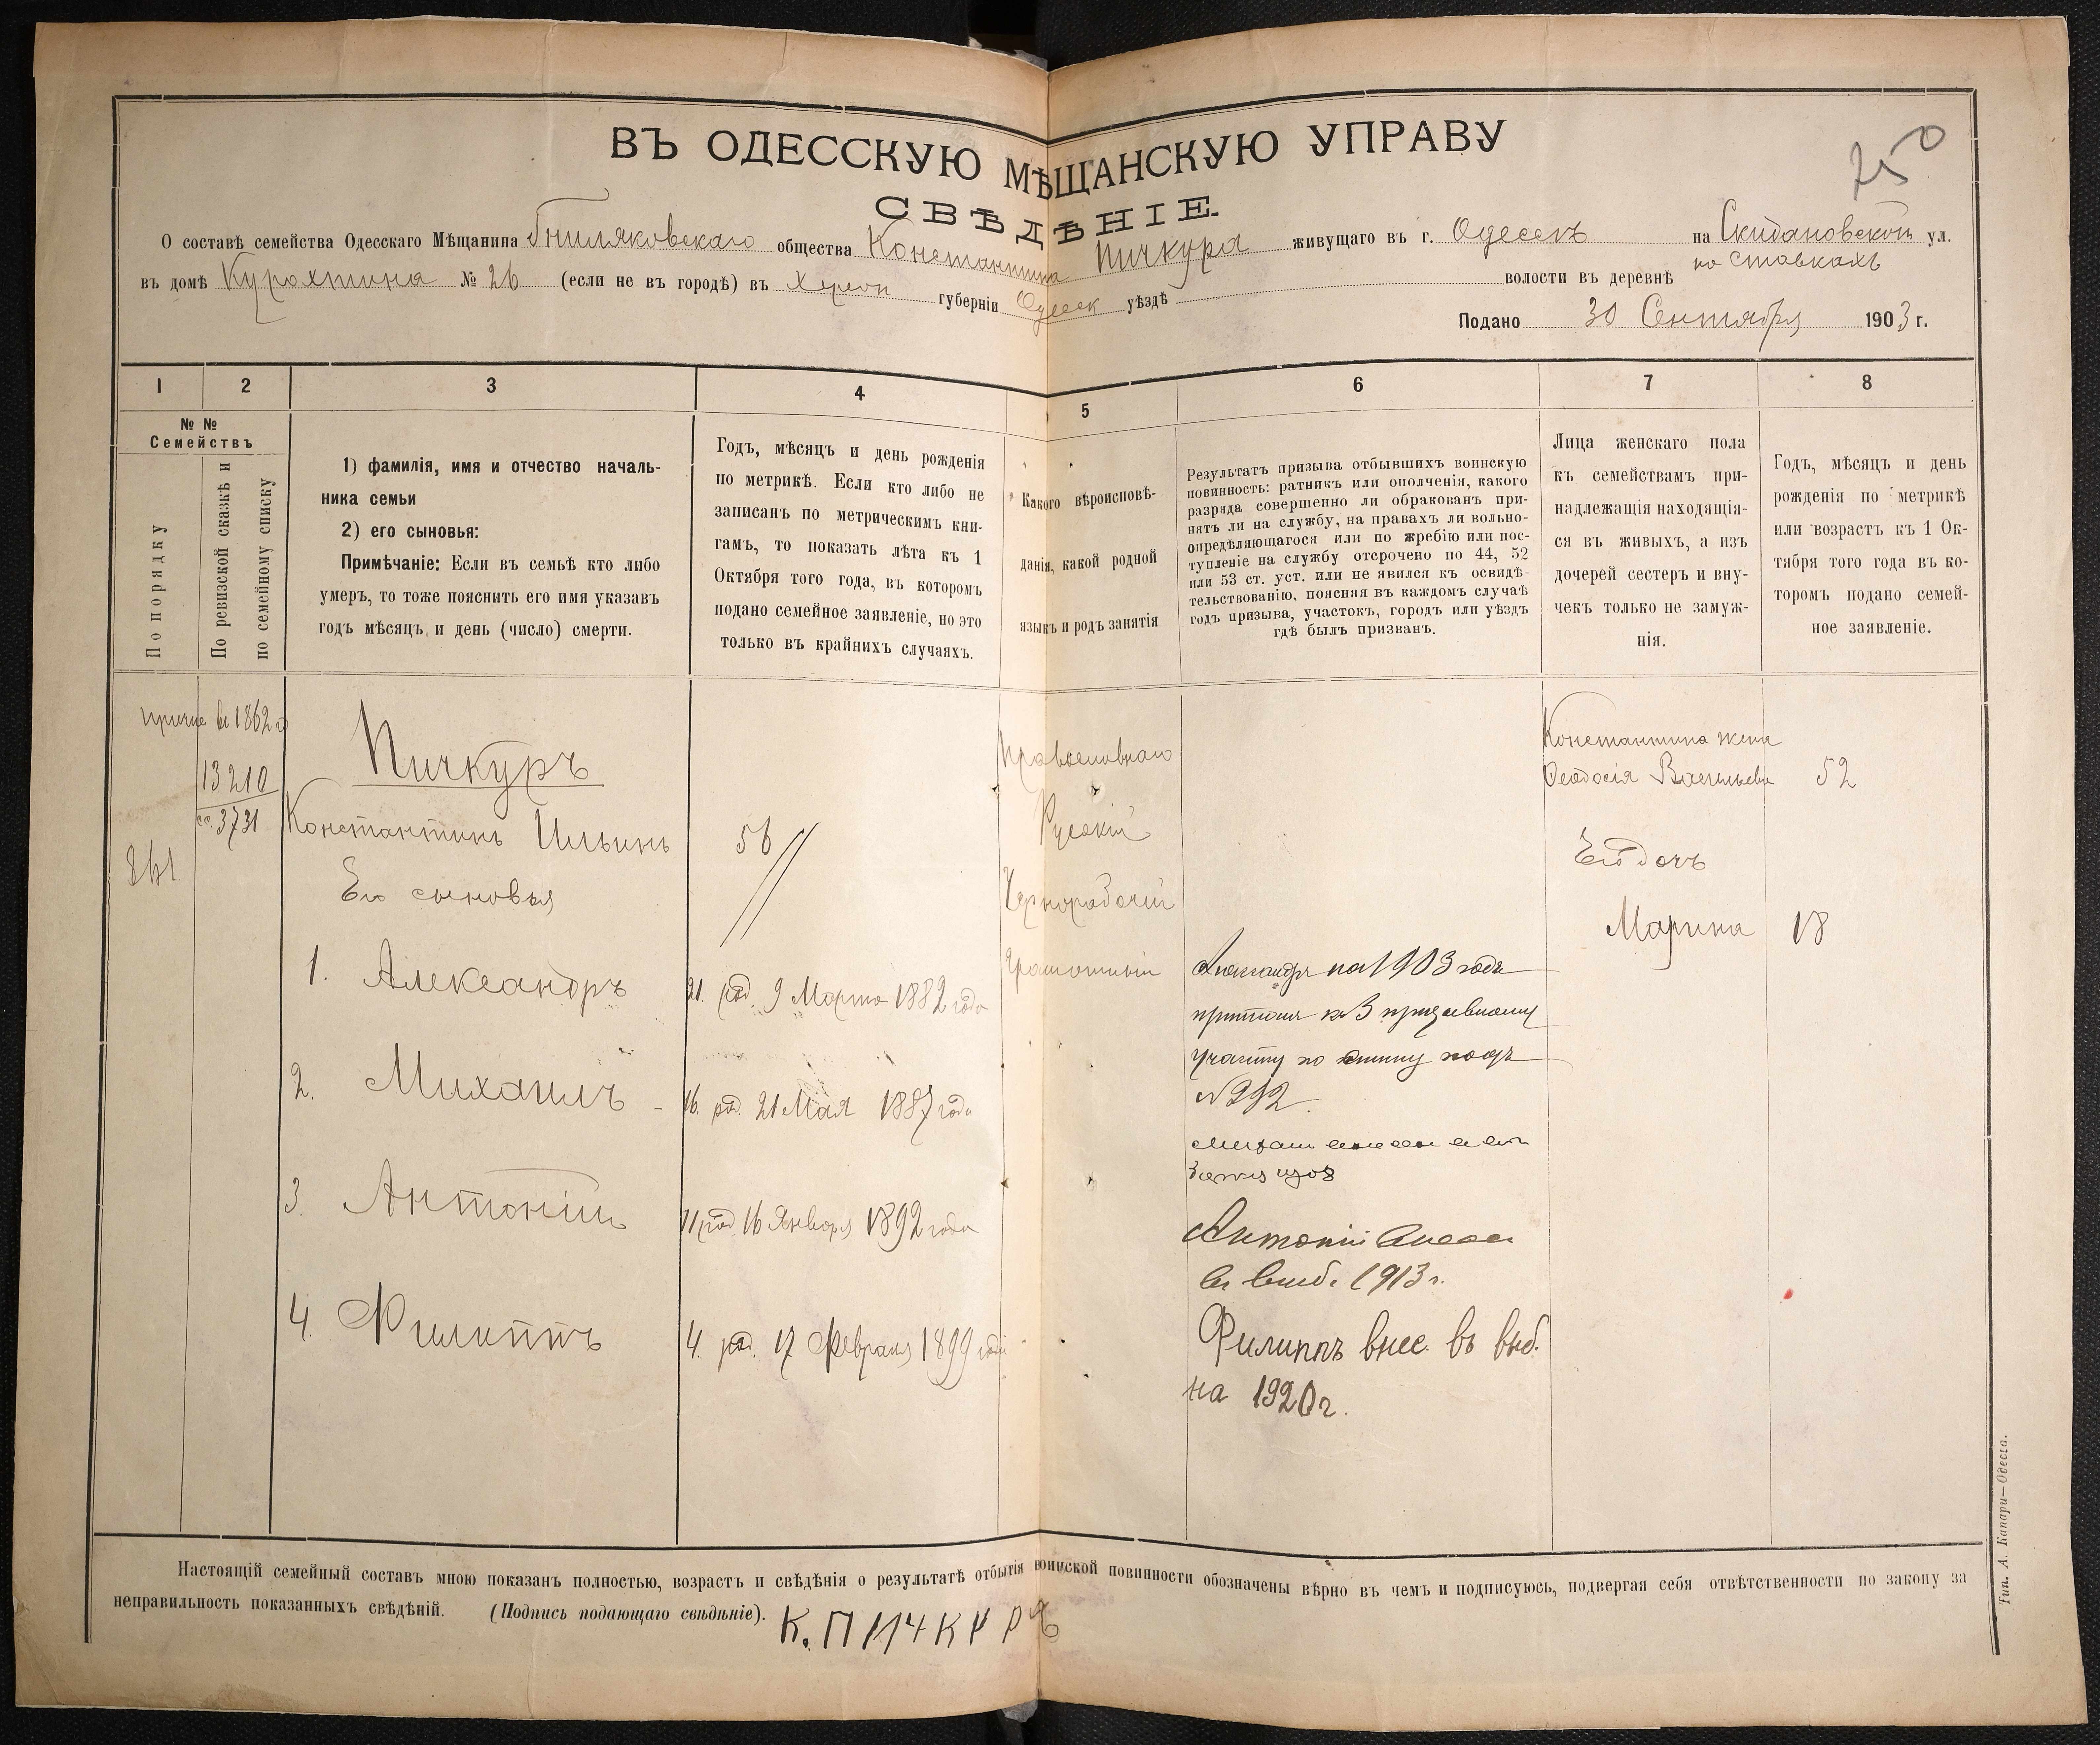 ВЪ ОДЕССКУЮ МѢЩАНСКУЮ УПРАВУ
СВѢДѢНІЕ.
О составѣ семейства Одесскаго Мѣщанина Гниляковскаго общества Константина Пичкура живущаго въ г. Одессѣ на Скидановской ул.
по ставкахъ
въ домѣ № 26 (если не въ городѣ) въ Херсон губерніи Одесск уѣздѣ волости въ деревнѣ
Подано 30 Сентября 1903 г.
1
2
3
4
5
6
7
8
№ №
Семействъ
По порядку
По ревизской сказкѣ и
по семейному списку
1) фамилія, имя и отчество началь-
ника семьи
2) его сыновья:
Примѣчаніе: Если въ семьѣ кто либо
умеръ, то тоже пояснить его имя указавъ
годъ мѣсяцъ и день (число) смерти.
Годъ, мѣсяцъ и день рожденія
по метрикѣ. Если кто либо не
записанъ по метрическимъ кни-
гамъ, то показать лѣта къ 1
Октября того года, въ которомъ
подано семейное заявленіе, но это
только въ крайнихъ случаяхъ.
Какого вѣроисповѣ-
данія, какой родной
языкъ и родъ занятія
Результатъ призыва отбывшихъ воинскую
повинность: ратникъ или ополченія, какого
разряда совершенно ли обракованъ при-
нятъ ли на службу, на правахъ ли вольно-
опредѣляющагося или по жребію или пос-
тупленіе на службу отсрочено по 44, 52
или 53 ст. уст. или не явился къ освидѣ-
тельствованію, поясняя въ каждомъ случаѣ
годъ призыва, участокъ, городъ или уѣздъ
гдѣ былъ призванъ.
Лица женскаго пола
къ семействамъ при-
надлежащія находящія-
ся въ живыхъ, а изъ
дочерей сестеръ и вну-
чекъ только не замуж-
нія.
Годъ, мѣсяцъ и день
рожденія по метрикѣ
или возрастъ къ 1 Ок-
тября того года въ ко-
торомъ подано семей-
ное заявленіе.
причис въ 1862 г
13210
3731
Пичкуръ
Константинъ Ильинъ
56
Его сыновья
1. Александръ
21. род. 9 Марта 1882 года
2. Михаилъ
16. род. 21 Мая 1887 года
3. Антоній
11 род 16 Января 1892 года
4. Филиппъ
4. род. 17 Февраля 1899 года
Православнаго
Русскій
Чернорабочій
Грамотный
Александръ на 1903 годъ
къ 3 призывному
участку по списку подъ
№ 292.
Антоній внесен
въ выб. 1913 г.
Филиппъ внес. въ выб.
на 1920 г.
Константина жена
Феодосія Васильева
52
Его дочь
Марина
18
Настоящій семейный составъ мною показанъ полностью, возрастъ и свѣдѣнія о результатѣ отбытія воинской повинности обозначены вѣрно въ чемъ и подписуюсь, подвергая себя отвѣтственности по закону за
неправильность показанныхъ свѣдѣній. (Подпись подающаго свѣдѣніе). К. ПИЧКУРЪ
Тип. А. Капари—Одесса.